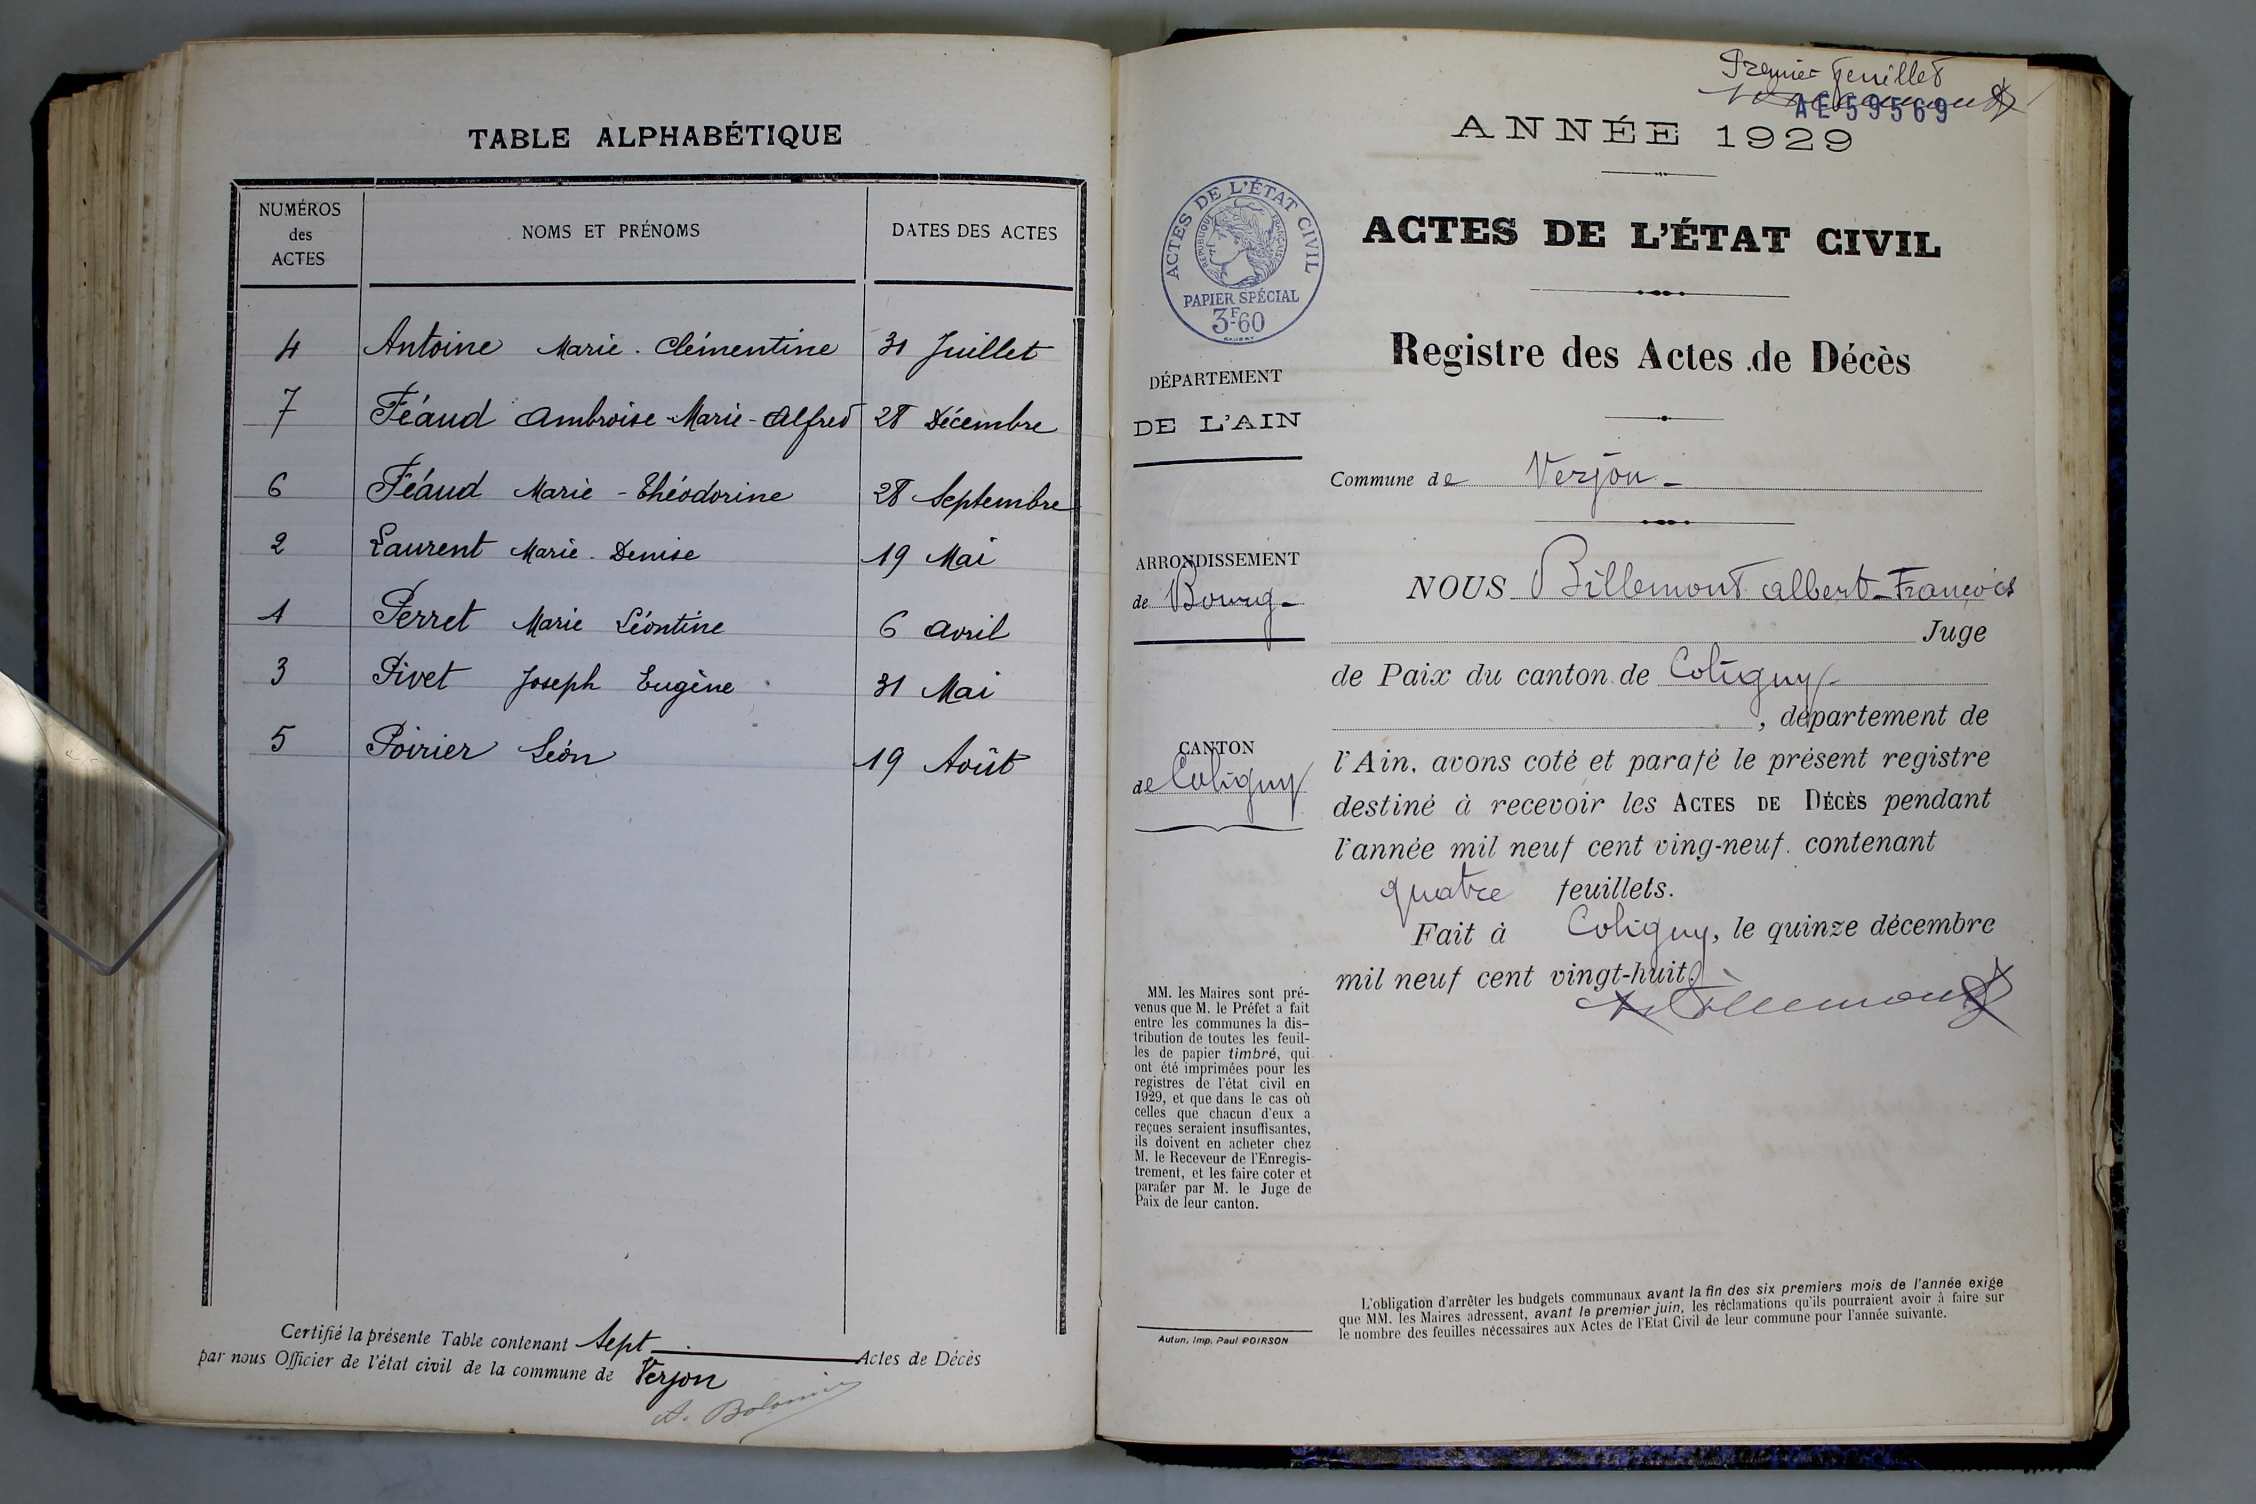 TABLE ALPHABÉTIQUE
NUMÉROS
des
ACTES
NOMS ET PRÉNOMS
DATES DES ACTES
4 Antoine Marie. Clémentine 31 Juillet
7 Féaud Ambroise-Marie-Alfred 28 Décembre
6 Féaud Marie-Théodorine 28 Septembre
2 Laurent Marie. Denise 19 Mai
1 Perret Marie Léontine 6 Avril
3 Pivet Joseph Eugène 31 Mai
5 Poirier Léon 19 Août
Certifié la présente Table contenant Sept Actes de Décès
par nous Officier de l'état civil de la commune de Verjon
Premier feuillet
AE 59569
ANNÉE 1929
ACTES DE L'ÉTAT CIVIL
RÉPUBLIQUE FRANÇAISE
PAPIER SPÉCIAL
3F60
DÉPARTEMENT
DE L'AIN
ARRONDISSEMENT
de Bourg-
CANTON
de Coligny
MM. les Maires sont pré-
venus que M. le Préfet a fait
entre les communes la dis-
tribution de toutes les feuil-
les de papier timbré, qui
ont été imprimées pour les
registres de l'état civil en
1929, et que dans le cas où
celles que chacun d'eux a
reçues seraient insuffisantes,
ils doivent en acheter chez
M. le Receveur de l'Enregis-
trement, et les faire coter et
parafer par M. le Juge de
Paix de leur canton.
Autun, Imp. Paul POIRSON
ACTES DE L'ÉTAT CIVIL
Registre des Actes de Décès
Commune de Verjon-
NOUS Billemont Albert-François
Juge
de Paix du canton de Coligny-
, département de
l'Ain, avons coté et parafé le présent registre
destiné à recevoir les ACTES DE DÉCÈS pendant
l'année mil neuf cent ving-neuf. contenant
quatre feuillets.
Fait à Coligny, le quinze décembre
mil neuf cent vingt-huit.
L'obligation d'arrêter les budgets communaux avant la fin des six premiers mois de l'année exige
que MM. les Maires adressent, avant le premier juin, les réclamations qu'ils pourraient avoir à faire sur
le nombre des feuilles nécessaires aux Actes de l'Etat Civil de leur commune pour l'année suivante.